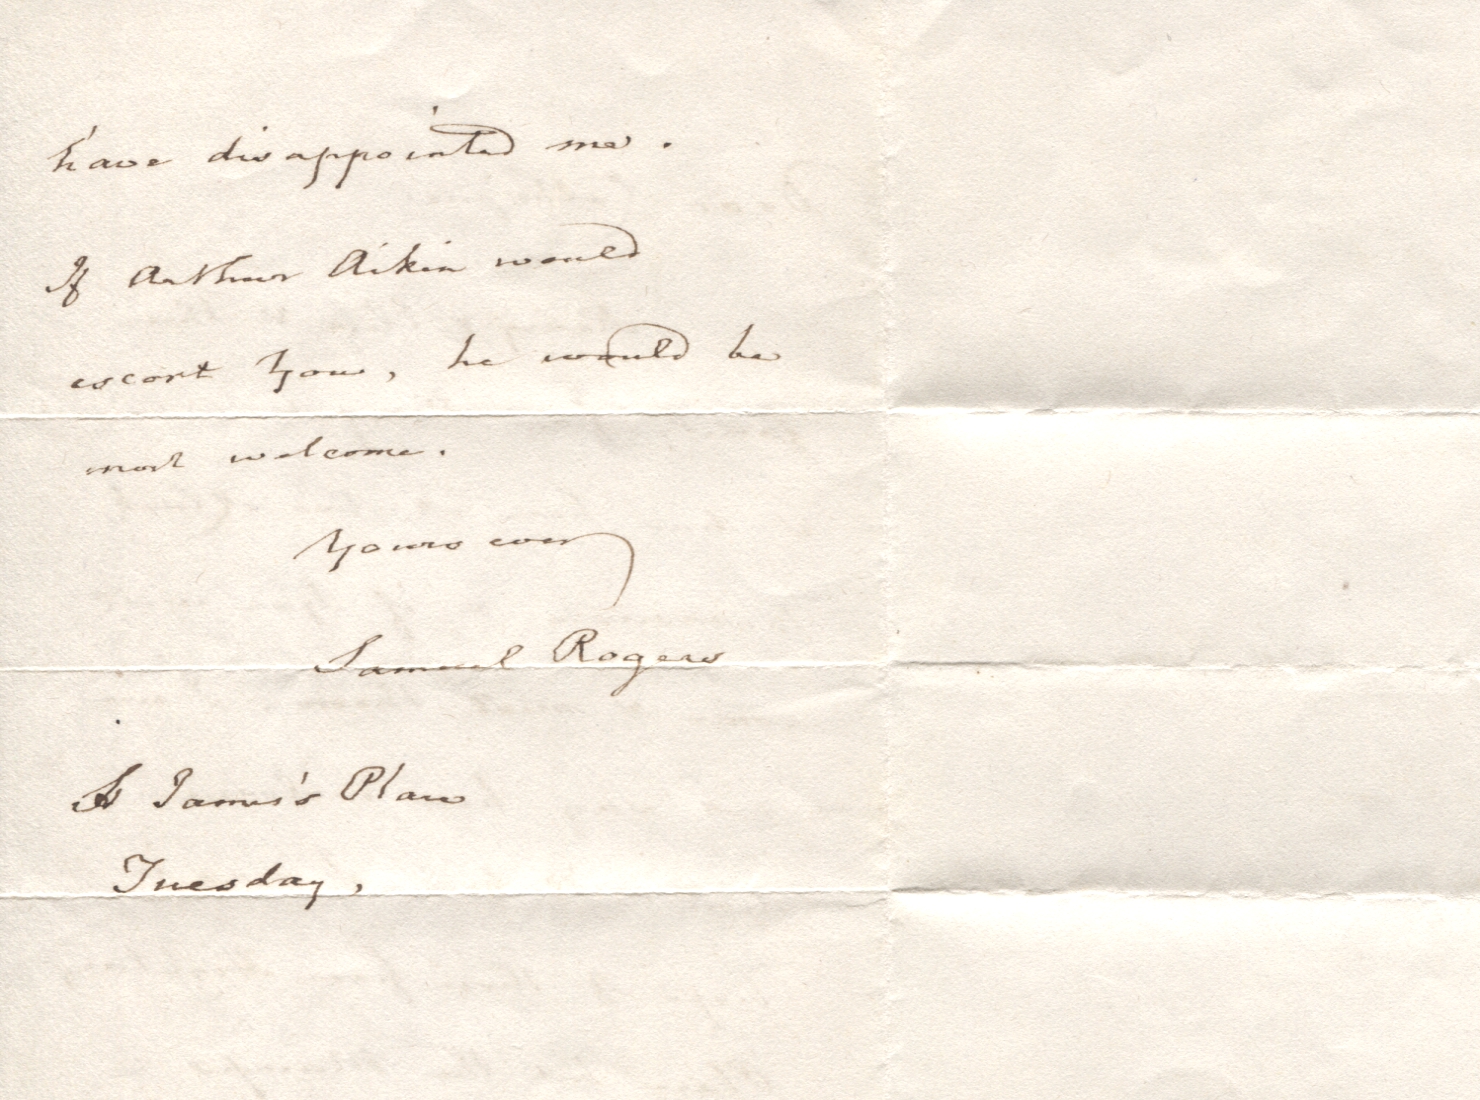 have disappointed me.
If Arthur Aikin would
escort You, he would be
most welcome.
Yours ever
Samuel Rogers
St James's Place
Tuesday,